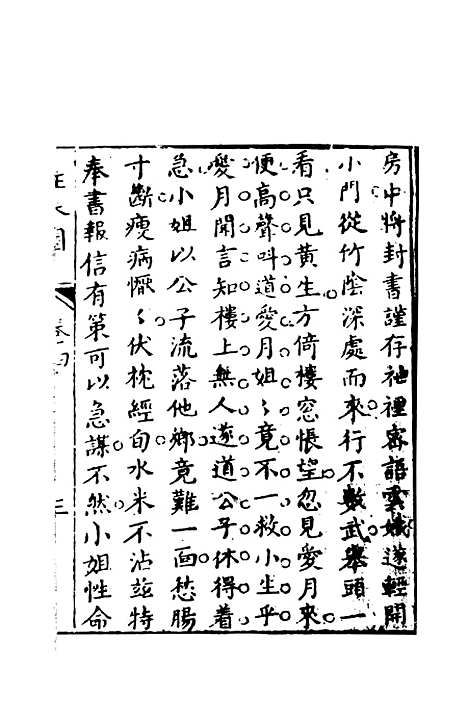 房中將封書謹存袖裡密語雲娥遂輕開
小門從竹陰深處而來行不數武舉頭一
看只見黃生方倚樓窓悵望忽見愛月來
便高聲呌道愛月姐〻竟不一救小生乎
愛月開言知樓上無人遂道公子休得着
急小姐以公子流落他鄉竟難一面愁腸
寸斷瘦病懨〻伏枕經旬水米不沾兹特
奉書報信有策可以急謀不然小姐性命
卷四
三